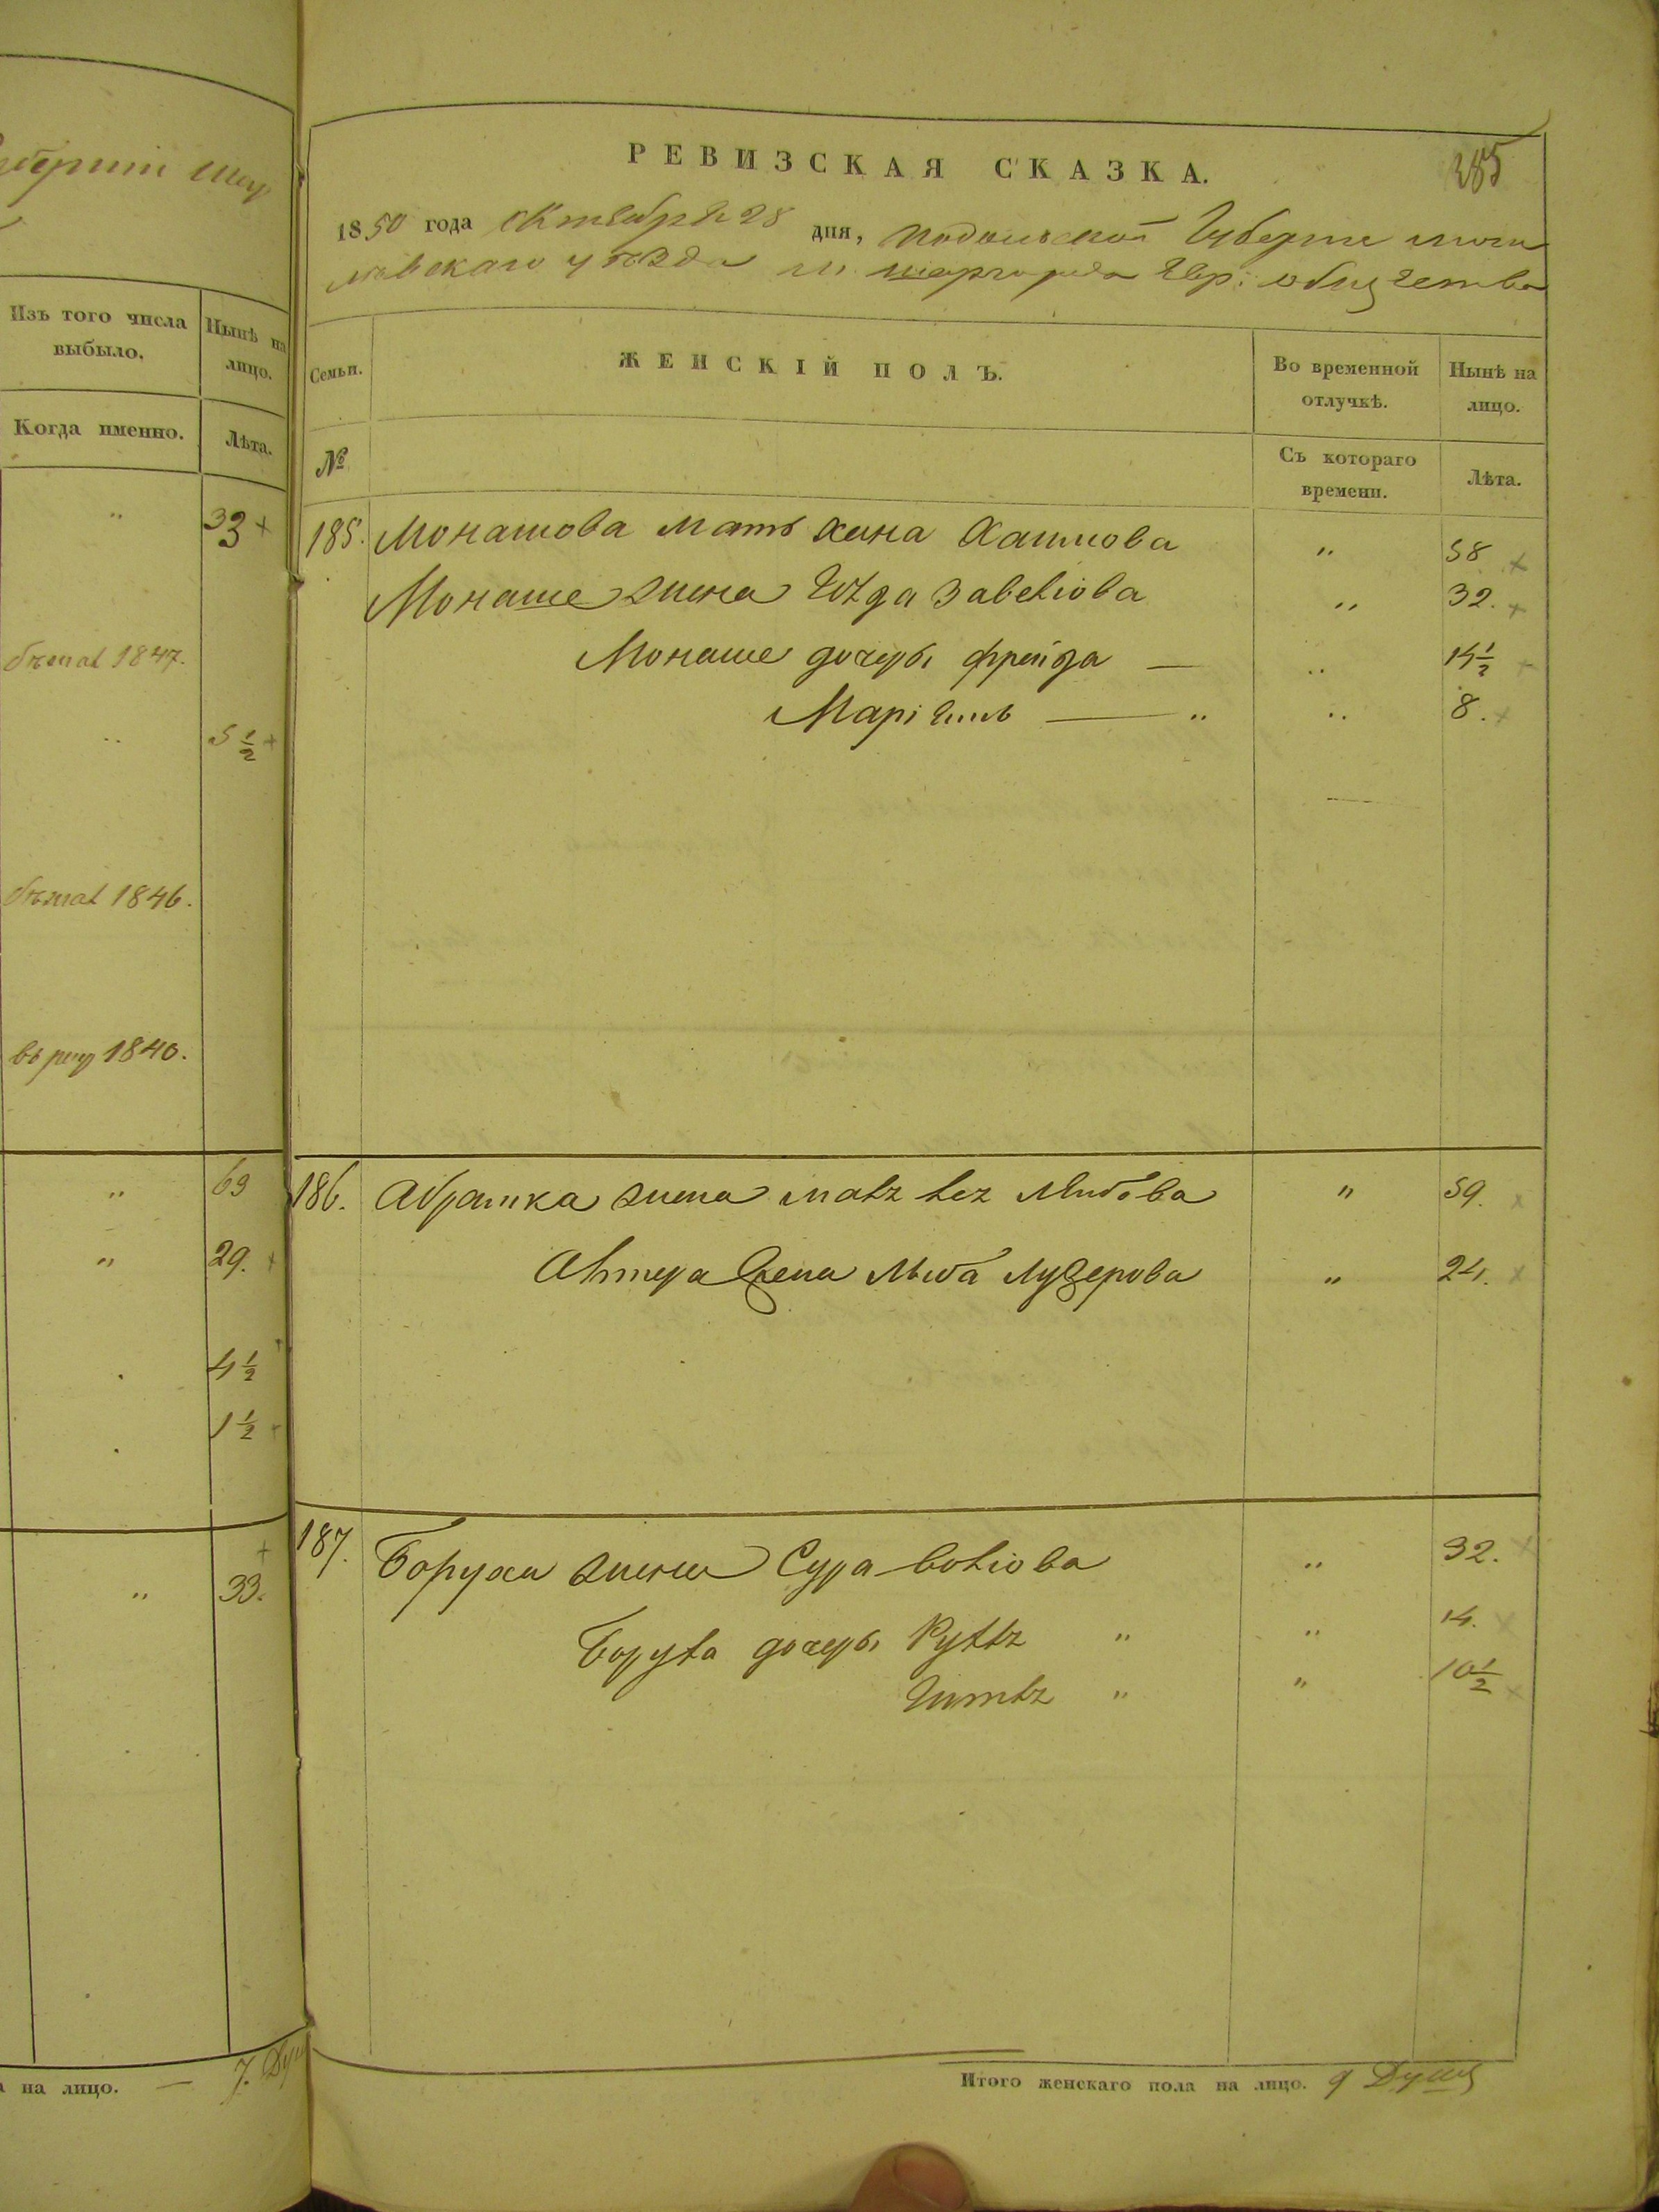 Изъ того числа
выбыло.
Нынѣ на
лицо.
Когда именно.
Лѣта.
"
33
бѣжал 1847.
"
5 1/2
бѣжал 1846.
въ рекр 1840.
"
69
"
29.
4 1/2
1 1/2
"
33.
на лицо. — 7. Душ
РЕВИЗСКАЯ СКАЗКА.
285
1850 года Октября 28 дня, Подольской Губерніи Моги
левскаго уѣзда м. Шаргорода Евр: общества
Семьи.
ЖЕНСКІЙ ПОЛЪ.
Во временной
отлучкѣ.
Нынѣ на
лицо.
№
Съ котораго
времени.
Лѣта.
185. Монашова мать Хина Хаимова " 58
Монаше жена Завелiова " 32.
Монаше дочерь фрейда — " 14 1/2
Марi — " " 8.
186. Абрамка жена Лейбова " 59.
жена Лейба Лузерова " 24.
187. Боруха жена Сура " 32.
Боруха дочерь " " 14.
" " 10 1/2
Итого женскаго пола на лицо. 9 Душъ